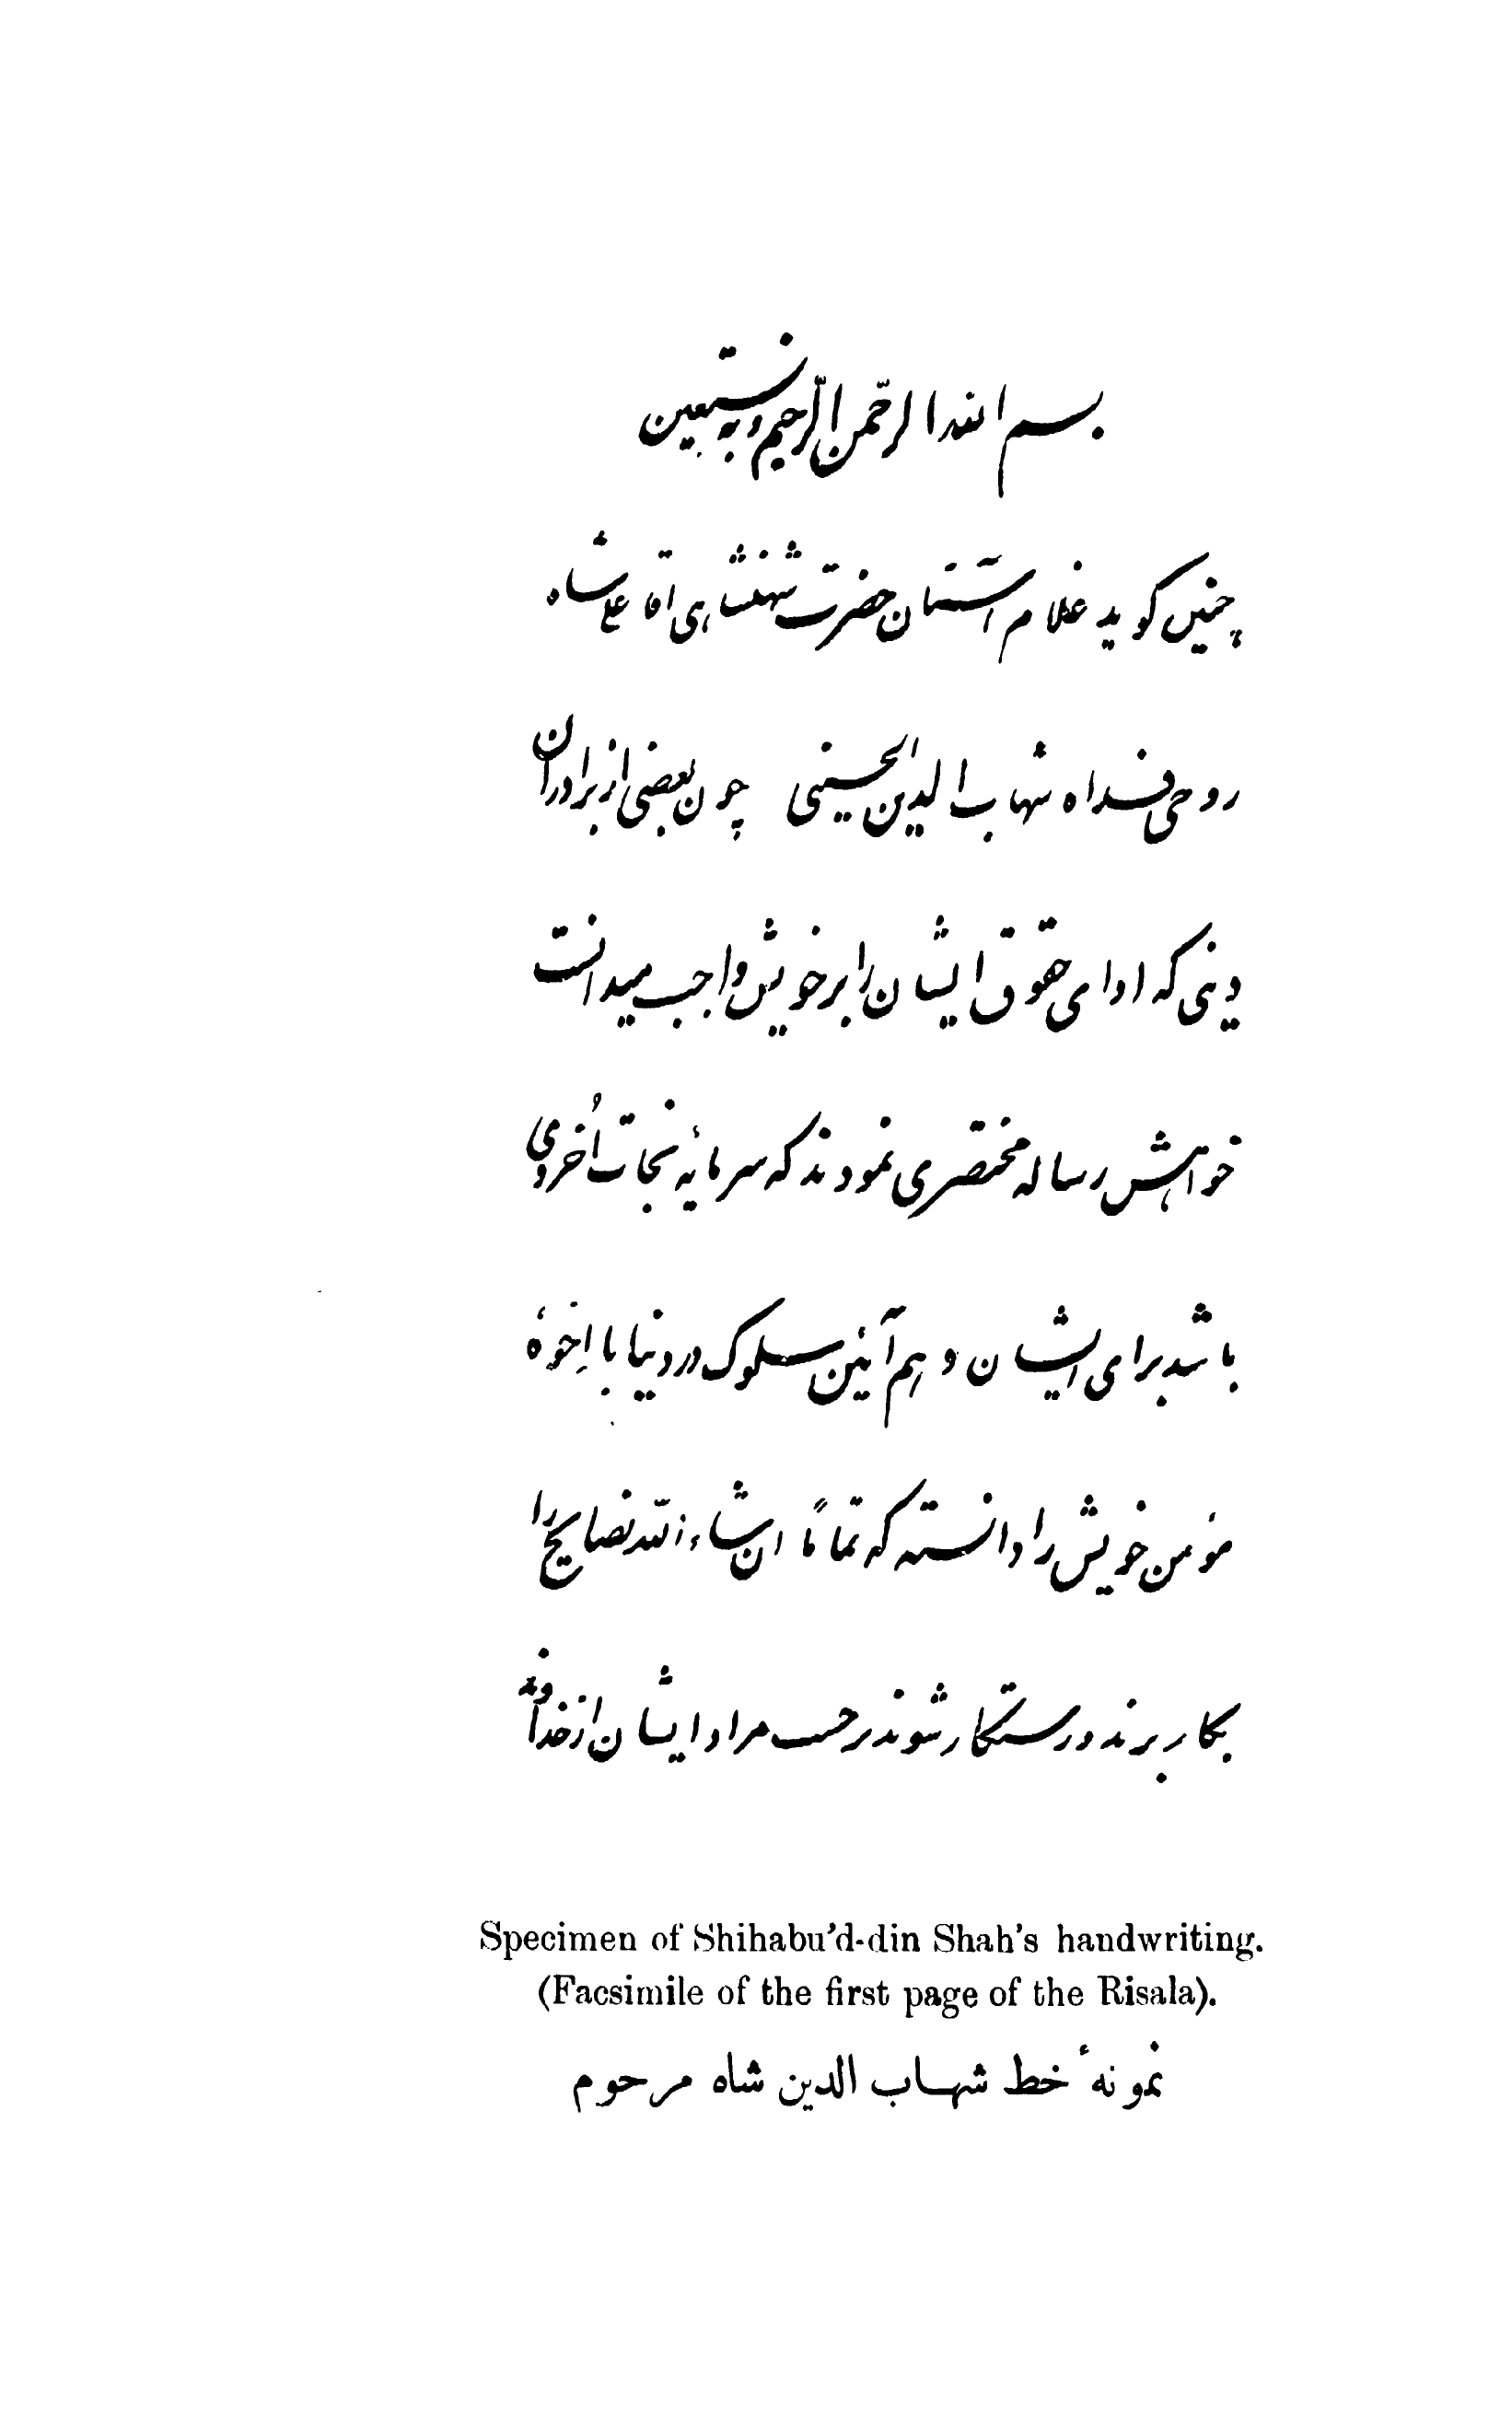 بسم الله الرّحمن الرّحیم و به نستعین
چنین کوید غلام آستان حضرت شهنشاهی اقا علیشاه
روحی فداه شهاب الدین الحسینی چون بعضی از برادران
دینی که ادای حقوق ایشان را بر خویش واجب میدانست
خواهش رساله مختصری نمودند که سرمایهٔ نجات اُخروی
باشد برای ایشان و هم آئین سلوک در دنیا با اِخوهٔ
مؤمن خویش را دانسته که تماماً ان شاء الله نصایح را
بکار برند و رستکار شوند بر حسب مراد ایشان از خداوند
Specimen of Shihabu'd-din Shah's handwriting.
(Facsimile of the first page of the Risala).
نمونهٔ خط شهاب الدین شاه مرحوم